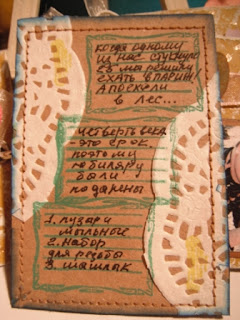 когда одному
из нас стукнуло
25 мы решили
ехать в париж!
а поехали
в лес...
четверть века
это срок.
поэтому
юбиляру
были
подарены
1. пузыри
мыльные
2. набор
для резьбы
3. шашлык